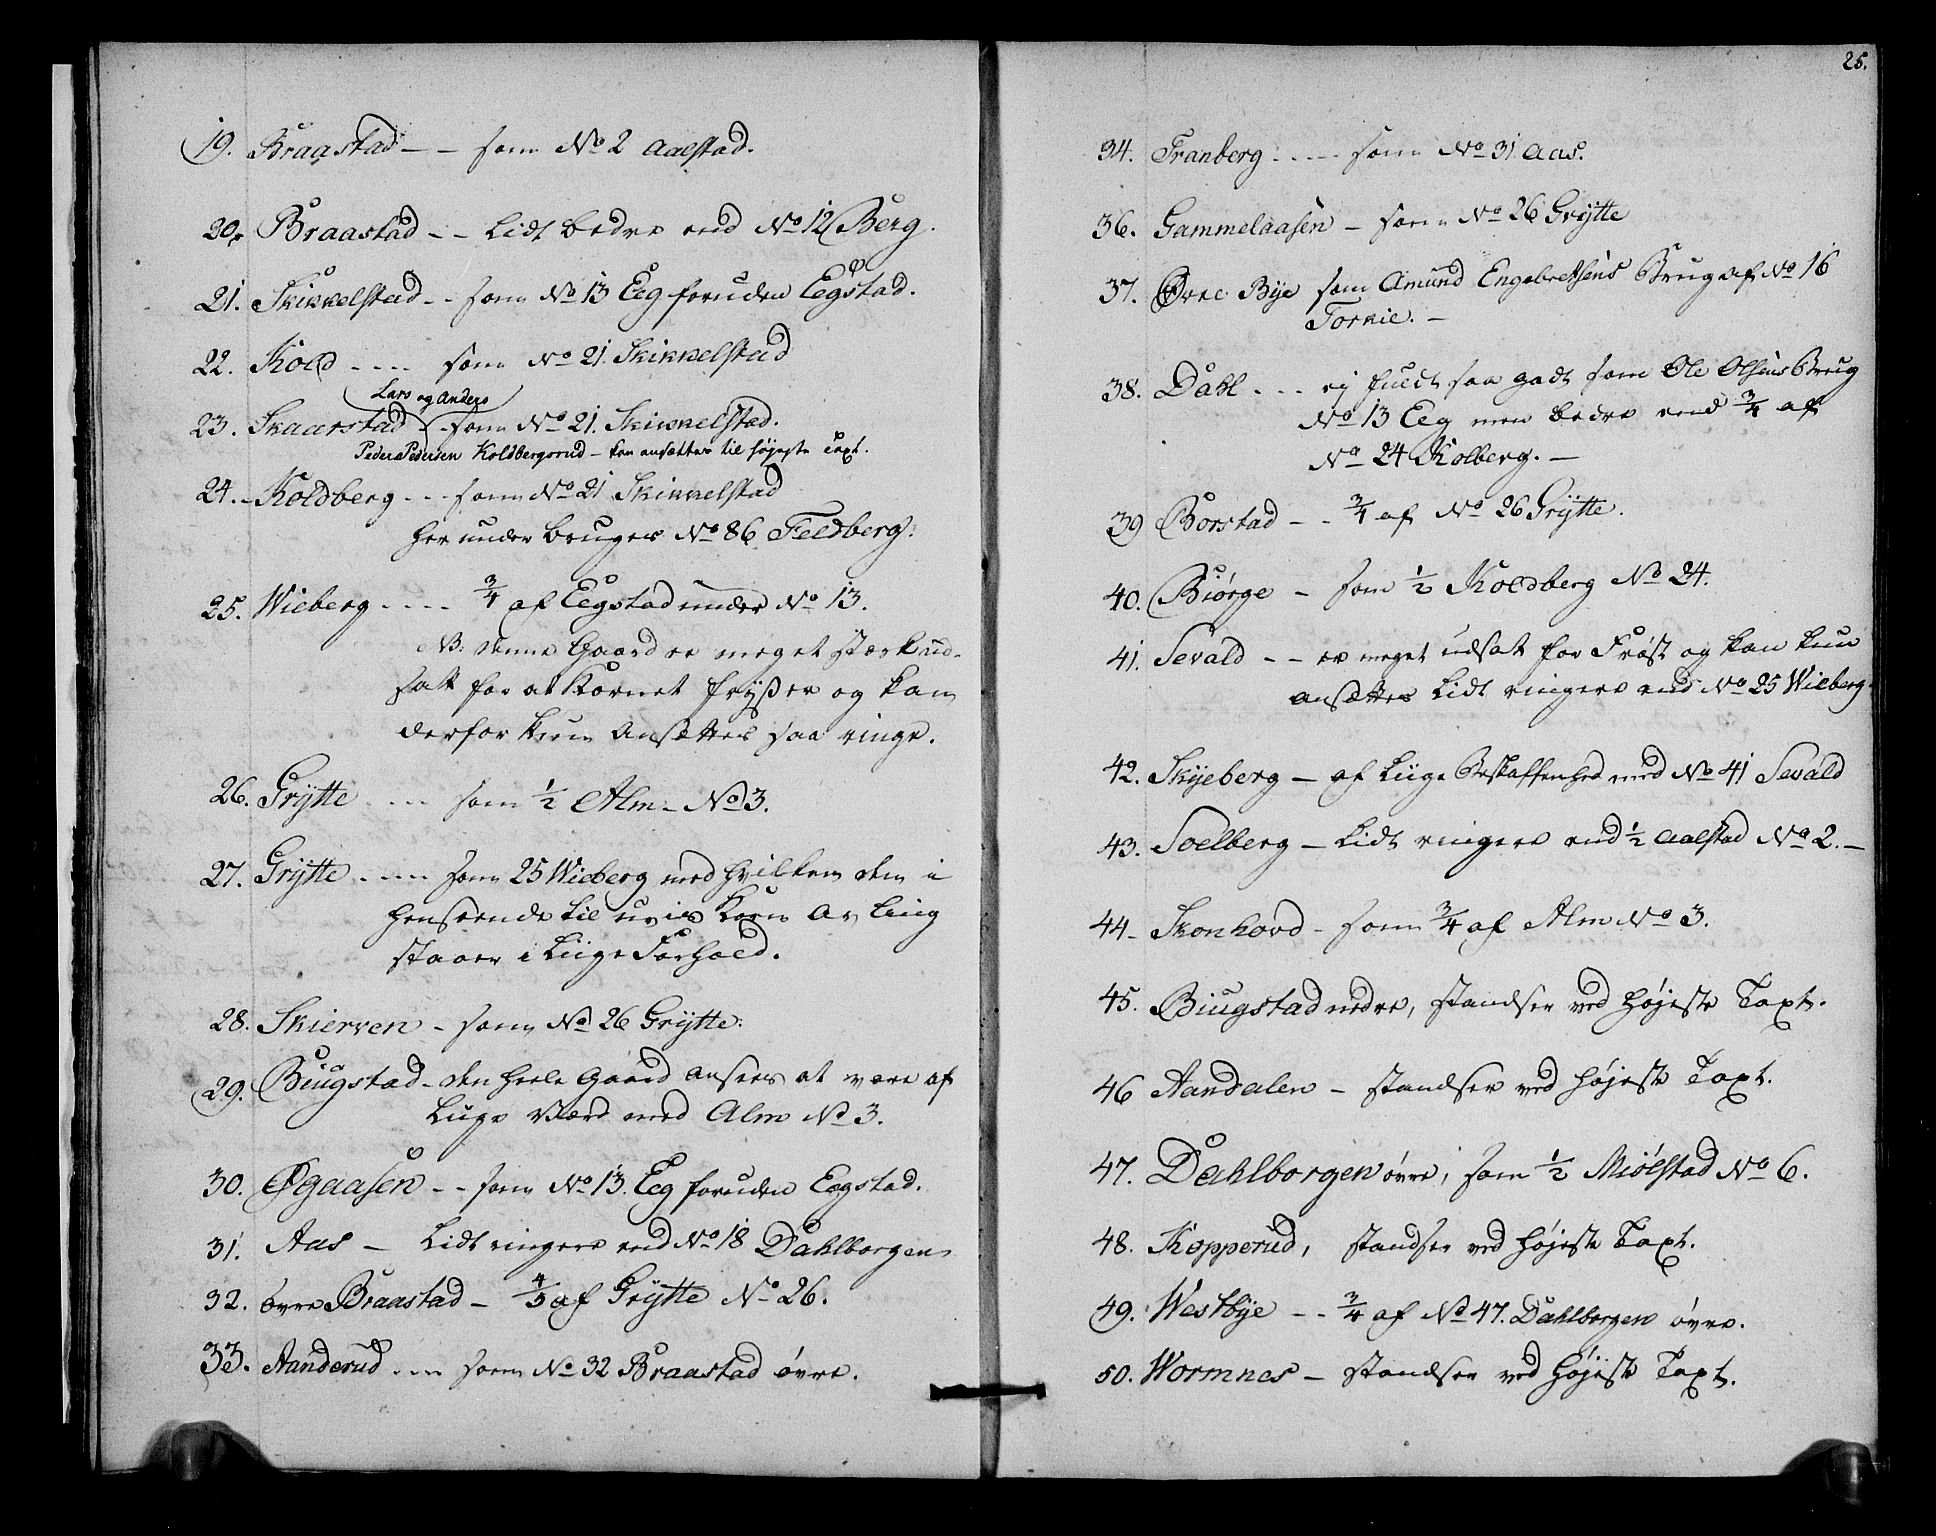 19. Braastad - - som No 2 Aalstad.
20. Braastad - - Lidt bedre end No 12 Berg.
21. Skikkelstad - - som No 13 Eeg foruden Eegstad.
22. Kold - - - - som No 21. Skikkelstad
Lars og Anders
23. Skaarstad - som No 21. Skikkelstad.
Peder Pedersen Koldbergsrud - kan ansættes til højeste Taxt.
24. Koldberg - - - som No 21 Skikkelstad
her under bruges No 86 Feldberg.
25. Wieberg - - - - 3/4 af Eegstad under No 13.
NB: denne Gaard er meget stærk ud-
satt for at Kornet frÿßer og kan
derfor kun Ansættes saa ringe.
26. Grÿtte - - - som 1/2 Alm - No 3.
27. Grÿtte - - - - som 25 Wieberg med hvilken den i
henseende til uvis Korn Avling
staaer i Liige Forhold.
28. Skierven - som No 26 Grÿtte.
29. Biugstad - den heele Gaard ansees at være af
Liige Værd med Alm No 3.
30. Øgaasen - - som No 13. Eeg foruden Eegstad.
31. Aas - Lidt ringere end No 18 Dahlborgen
32. øvre Braastad - 4/5 af Grÿtte No 26.
33. Aanderud - - - som No 32 Braastad øvre.
25.
34. Tranberg - - - - - som No 31. Aas.
36. Gammelaasen - som No 26 Grÿtte
37. Øvre Bÿe som Amund Engebretsens Brug af No 16
Torkie. -
38. Dahl - - - ej fuldt saa godt som Ole Olsens Brug
No 13 Eeg men bedre end 3/4 af
No 24 Kolberg. -
39 Borstad - - 3/4 af No 26 Grÿtte.
40. Biørge - som 1/2 Koldberg No 24.
41. Sevald - - er meget udsat for Frøst og kan kun
ansættes Lidt ringere end No 25 Wieberg.
42. Skÿeberg - af Liige Beskaffenhed med No 41 Sevald
43. Soelberg - Lidt ringere end 1/2 Aalstad No 2. -
44 - Skonhovd - som 3/4 af Alm No 3.
45. Biugstad nedre, standser ved højeste Taxt.
46 Aandalen - standser ved højeste Taxt.
47. Dahlborgen øvre, som 1/2 Miølstad No 6.
48. Kopperud, standser ved højeste Taxt.
49. Westbÿe - - 3/4 af No 47. Dahlborgen øvre.
50. Wormnes - standser ved højeste Taxt.